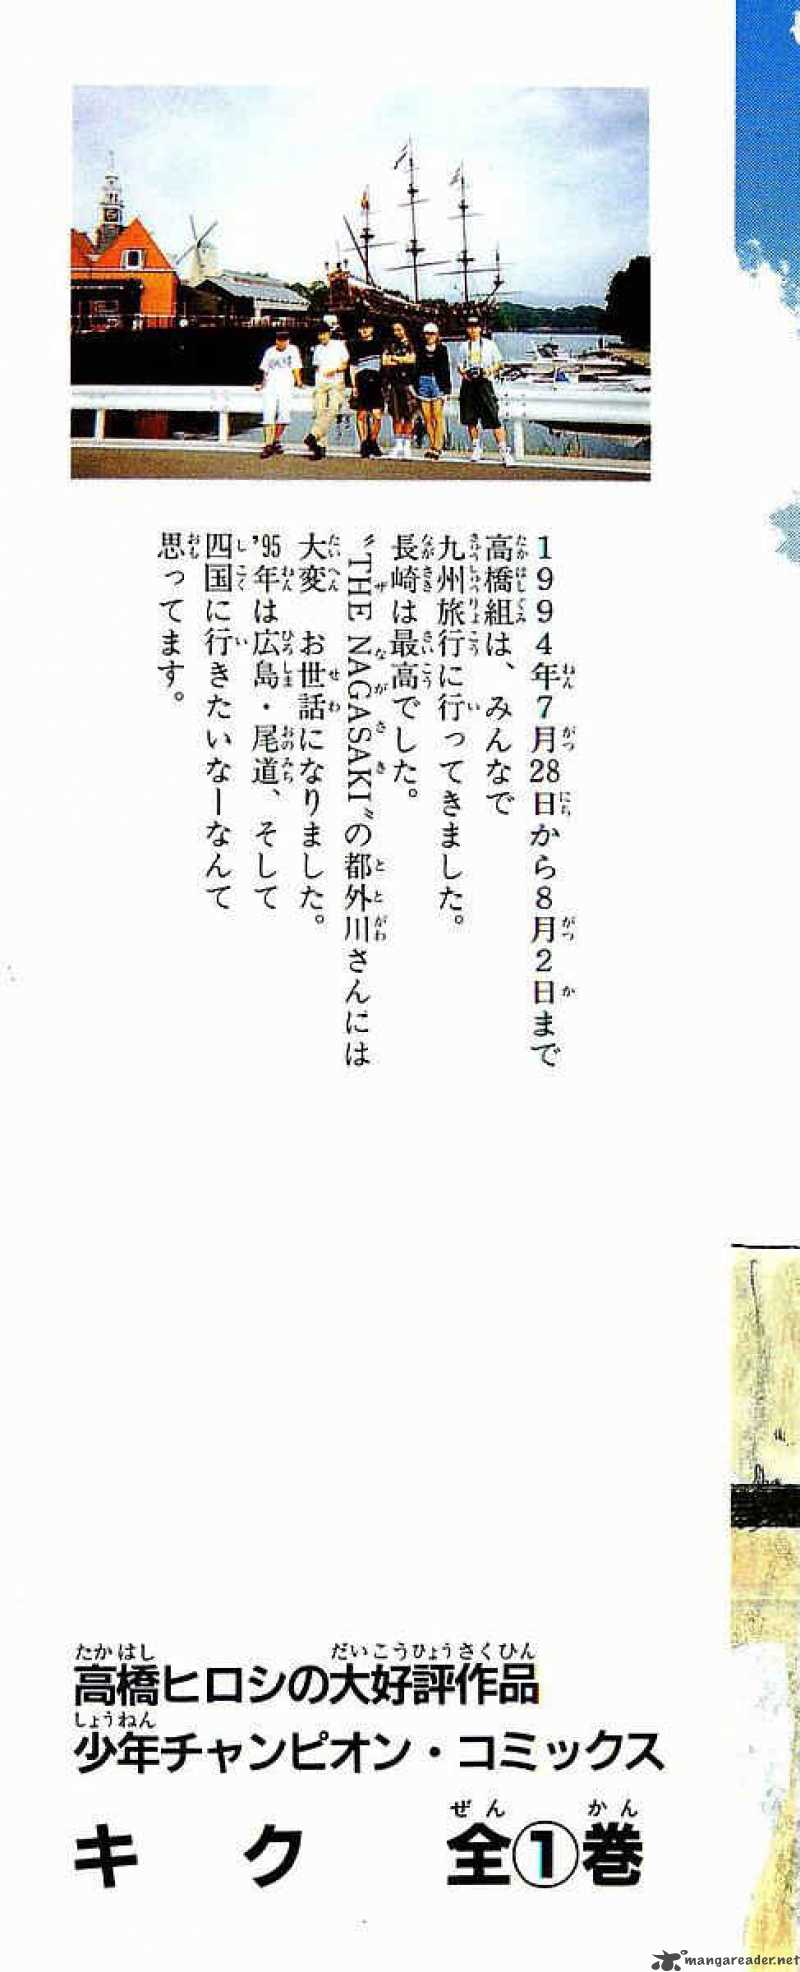 1994年7月28日から8月2日まで
高橋組は、みんなで
九州旅行に行ってきました。
長崎は最高でした。
〝THE NAGASAKI〟の都外川さんには
大変 お世話になりました。
'95年は広島・尾道、そして
四国に行きたいなーなんて
思ってます。
高橋ヒロシの大好評作品
少年チャンピオン・コミックス
キク 全①巻
mangareader.net